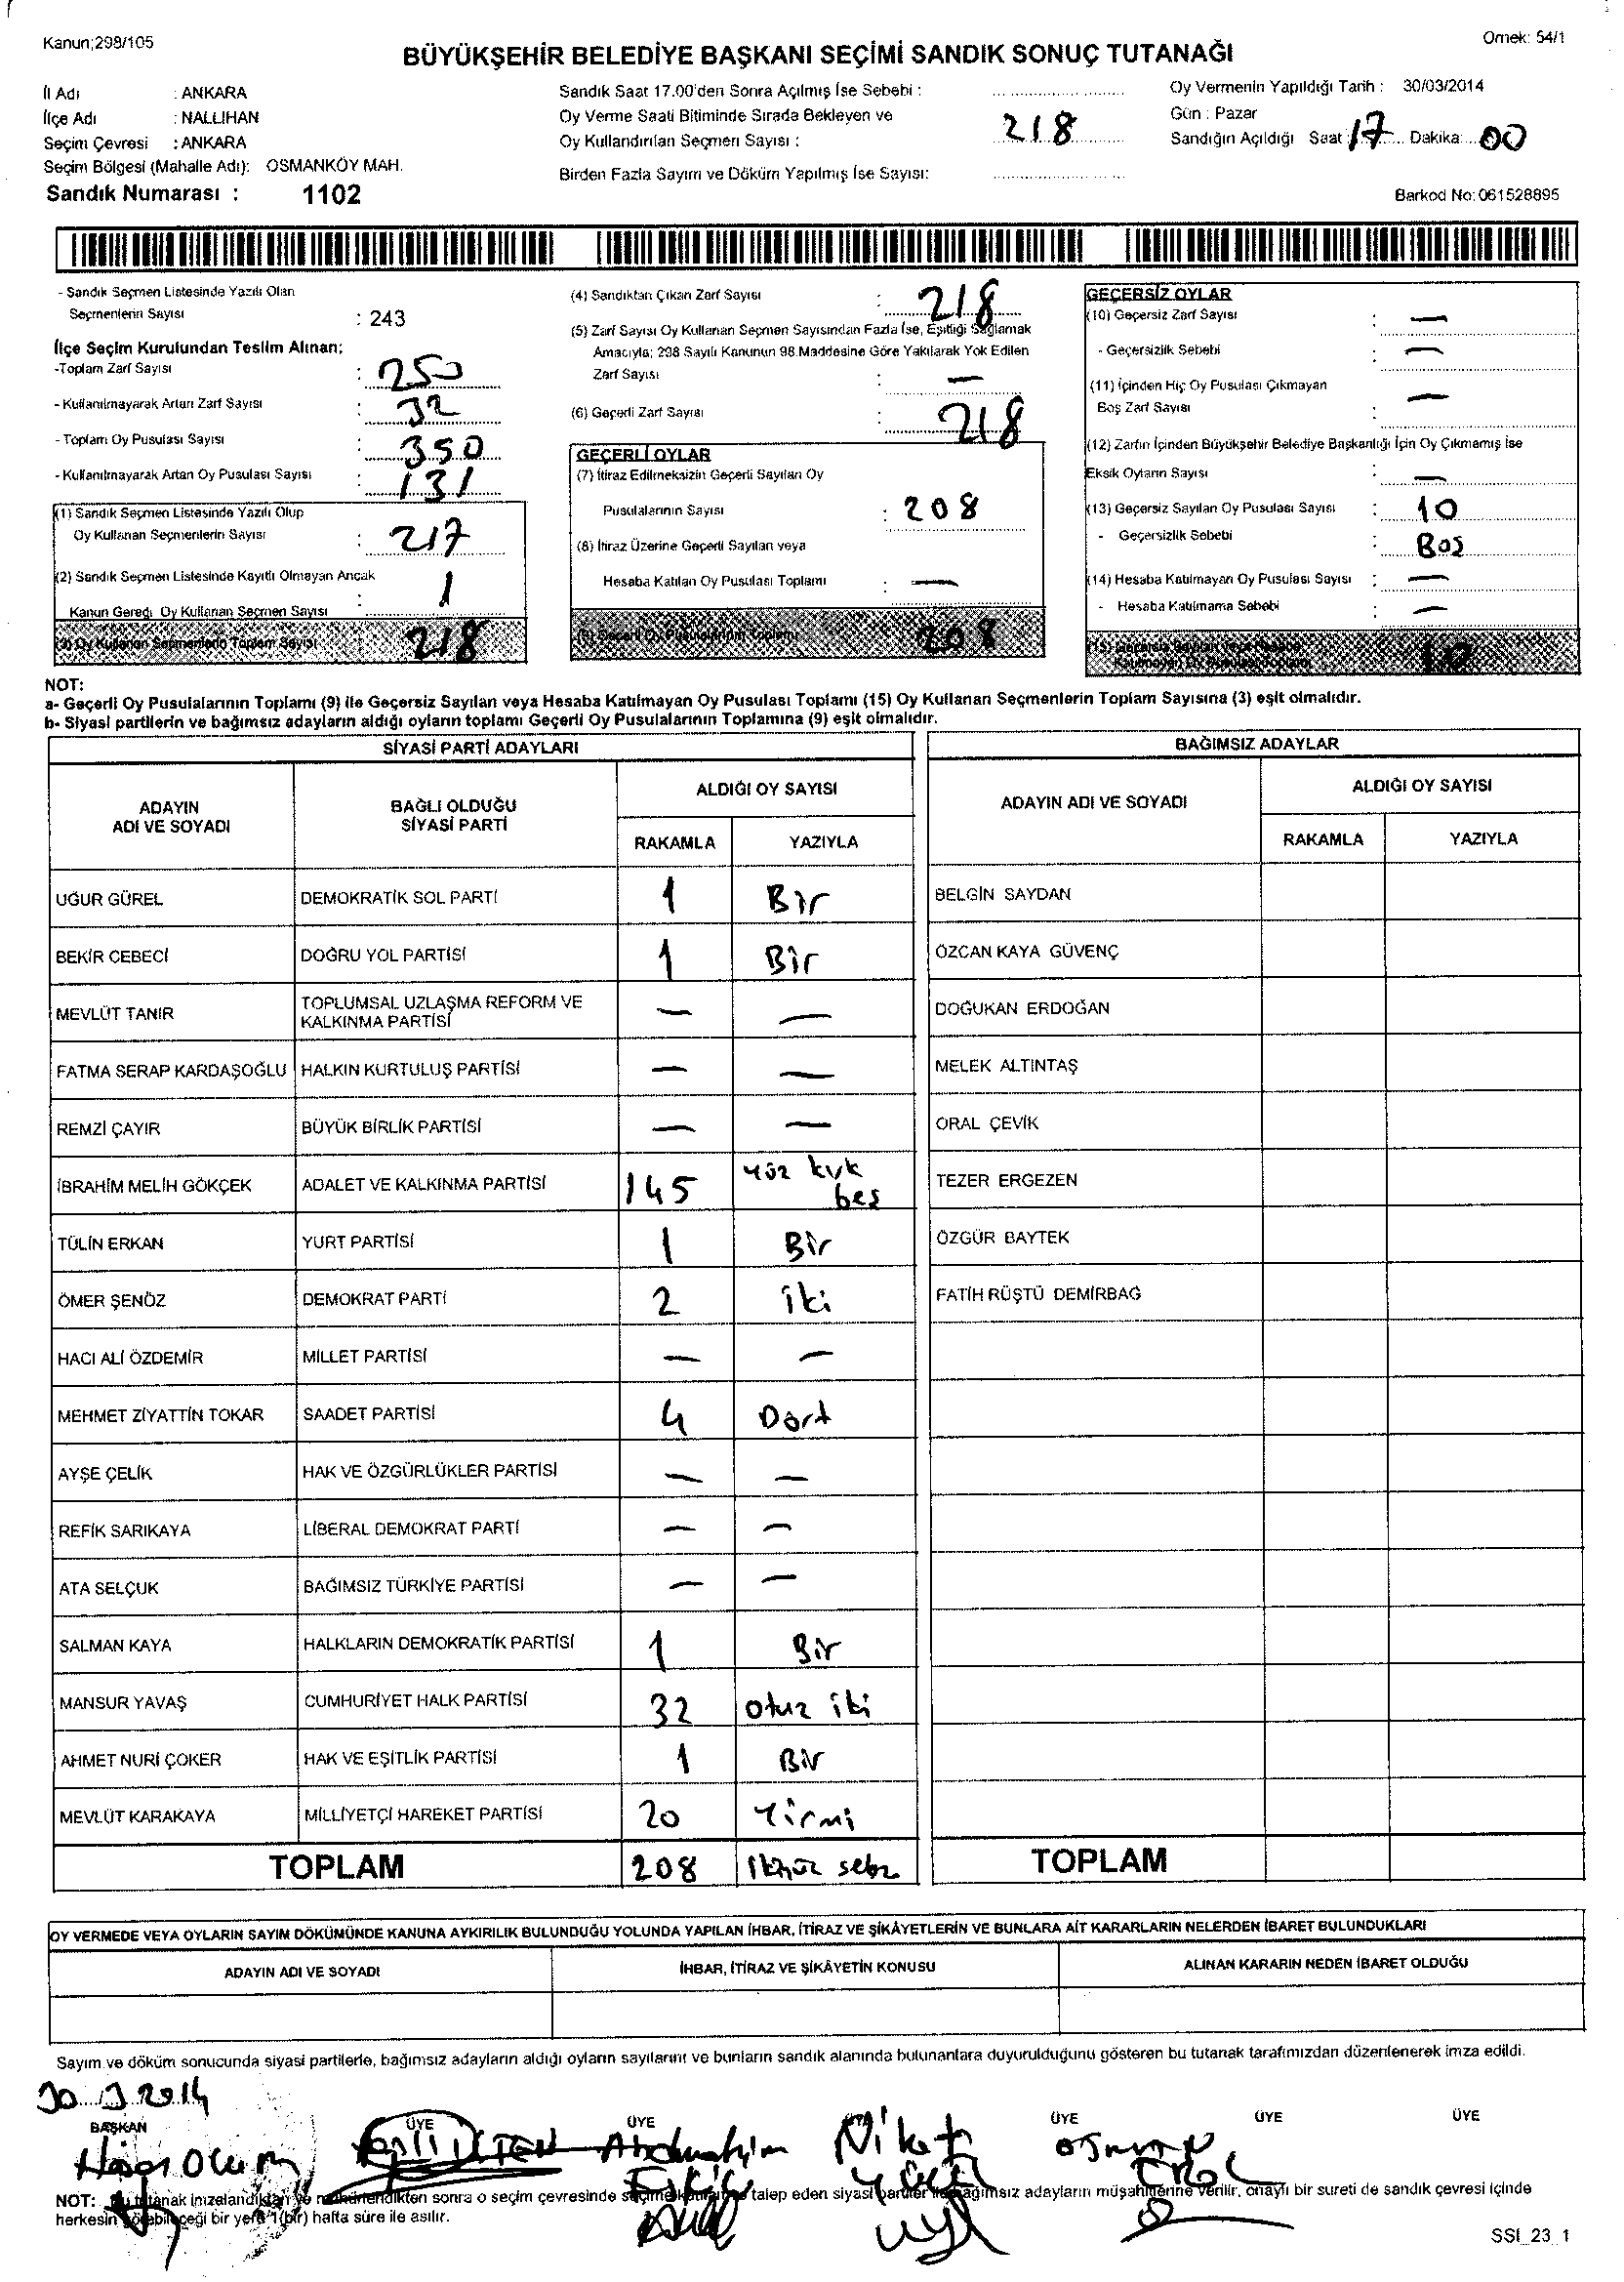 Kanun;298/105
Örnek: 54/1
BÜYÜKŞEHİR BELEDİYE BAŞKANI SEÇİMİ SANDIK SONUÇ TUTANAĞI
İl Adı : ANKARA
İlçe Adı : NALLIHAN
Seçim Çevresi : ANKARA
Seçim Bölgesi (Mahalle Adı): OSMANKÖY MAH.
Sandık Numarası : 1102
Sandık Saat 17.00'den Sonra Açılmış İse Sebebi :
Oy Verme Saati Bitiminde Sırada Bekleyen ve
Oy Kullandırılan Seçmen Sayısı : 218
Birden Fazla Sayım ve Döküm Yapılmış İse Sayısı:
Oy Vermenin Yapıldığı Tarih : 30/03/2014
Gün : Pazar
Sandığın Açıldığı Saat 17 Dakika: 00
Barkod No: 061528895
- Sandık Seçmen Listesinde Yazılı Olan
Seçmenlerin Sayısı : 243
İlçe Seçim Kurulundan Teslim Alınan;
-Toplam Zarf Sayısı : 250
- Kullanılmayarak Artan Zarf Sayısı : 32
- Toplam Oy Pusulası Sayısı : 350
- Kullanılmayarak Artan Oy Pusulası Sayısı : 131
(1) Sandık Seçmen Listesinde Yazılı Olup
Oy Kullanan Seçmenlerin Sayısı : 217
(2) Sandık Seçmen Listesinde Kayıtlı Olmayan Ancak
Kanun Gereği Oy Kullanan Seçmen Sayısı : 1
(3) Oy Kullanan Seçmenlerin Toplam Sayısı 218
(4) Sandıktan Çıkan Zarf Sayısı : 218
(5) Zarf Sayısı Oy Kullanan Seçmen Sayısından Fazla İse, Eşitliği Sağlamak
Amacıyla; 298 Sayılı Kanunun 98.Maddesine Göre Yakılarak Yok Edilen
Zarf Sayısı : —
(6) Geçerli Zarf Sayısı : 218
GEÇERLİ OYLAR
(7) İtiraz Edilmeksizin Geçerli Sayılan Oy
Pusulalarının Sayısı : 208
(8) İtiraz Üzerine Geçerli Sayılan veya
Hesaba Katılan Oy Pusulası Toplamı : —
(9) Geçerli Oy Pusulalarının Toplamı 208
GEÇERSİZ OYLAR
(10) Geçersiz Zarf Sayısı : —
- Geçersizlik Sebebi : —
(11) İçinden Hiç Oy Pusulası Çıkmayan
Boş Zarf Sayısı : —
(12) Zarfın İçinden Büyükşehir Belediye Başkanlığı İçin Oy Çıkmamış İse
Eksik Oyların Sayısı : —
(13) Geçersiz Sayılan Oy Pusulası Sayısı : 10
- Geçersizlik Sebebi : Boş
(14) Hesaba Katılmayan Oy Pusulası Sayısı : —
- Hesaba Katılmama Sebebi : —
(15) Geçersiz Sayılan veya Hesaba
Katılmayan Oy Pusulası Toplamı 10
NOT:
a- Geçerli Oy Pusulalarının Toplamı (9) ile Geçersiz Sayılan veya Hesaba Katılmayan Oy Pusulası Toplamı (15) Oy Kullanan Seçmenlerin Toplam Sayısına (3) eşit olmalıdır.
b- Siyasi partilerin ve bağımsız adayların aldığı oyların toplamı Geçerli Oy Pusulalarının Toplamına (9) eşit olmalıdır.
SİYASİ PARTİ ADAYLARI
ADAYIN ADI VE SOYADI BAĞLI OLDUĞU SİYASİ PARTİ ALDIĞI OY SAYISI
RAKAMLA YAZIYLA
UĞUR GÜREL DEMOKRATİK SOL PARTİ 1 Bir
BEKİR CEBECİ DOĞRU YOL PARTİSİ 1 Bir
MEVLÜT TANIR TOPLUMSAL UZLAŞMA REFORM VE KALKINMA PARTİSİ — —
FATMA SERAP KARDAŞOĞLU HALKIN KURTULUŞ PARTİSİ — —
REMZİ ÇAYIR BÜYÜK BİRLİK PARTİSİ — —
İBRAHİM MELİH GÖKÇEK ADALET VE KALKINMA PARTİSİ 145 Yüz kırk beş
TÜLİN ERKAN YURT PARTİSİ 1 Bir
ÖMER ŞENÖZ DEMOKRAT PARTİ 2 iki
HACI ALİ ÖZDEMİR MİLLET PARTİSİ — —
MEHMET ZİYATTİN TOKAR SAADET PARTİSİ 4 Dört
AYŞE ÇELİK HAK VE ÖZGÜRLÜKLER PARTİSİ — —
REFİK SARIKAYA LİBERAL DEMOKRAT PARTİ — —
ATA SELÇUK BAĞIMSIZ TÜRKİYE PARTİSİ — —
SALMAN KAYA HALKLARIN DEMOKRATİK PARTİSİ 1 Bir
MANSUR YAVAŞ CUMHURİYET HALK PARTİSİ 32 otuz iki
AHMET NURİ ÇOKER HAK VE EŞİTLİK PARTİSİ 1 Bir
MEVLÜT KARAKAYA MİLLİYETÇİ HAREKET PARTİSİ 20 Yirmi
TOPLAM 208
BAĞIMSIZ ADAYLAR
ADAYIN ADI VE SOYADI ALDIĞI OY SAYISI
RAKAMLA YAZIYLA
BELGİN SAYDAN
ÖZCAN KAYA GÜVENÇ
DOĞUKAN ERDOĞAN
MELEK ALTINTAŞ
ORAL ÇEVİK
TEZER ERGEZEN
ÖZGÜR BAYTEK
FATİH RÜŞTÜ DEMİRBAĞ
TOPLAM
OY VERMEDE VEYA OYLARIN SAYIM DÖKÜMÜNDE KANUNA AYKIRILIK BULUNDUĞU YOLUNDA YAPILAN İHBAR, İTİRAZ VE ŞİKÂYETLERİN VE BUNLARA AİT KARARLARIN NELERDEN İBARET BULUNDUKLARI
ADAYIN ADI VE SOYADI İHBAR, İTİRAZ VE ŞİKÂYETİN KONUSU ALINAN KARARIN NEDEN İBARET OLDUĞU
Sayım ve döküm sonucunda siyasi partilerle, bağımsız adayların aldığı oyların sayılarını ve bunların sandık alanında bulunanlara duyurulduğunu gösteren bu tutanak tarafımızdan düzenlenerek imza edildi.
30.3.2014
BAŞKAN ÜYE ÜYE ÜYE ÜYE ÜYE ÜYE
NOT: Bu tutanak imzalandıktan ve mühürlendikten sonra o seçim çevresinde seçime katılan ve talep eden siyasi partiler ile bağımsız adayların müşahitlerine verilir, onaylı bir sureti de sandık çevresi içinde
herkesin görebileceği bir yere 1(bir) hafta süre ile asılır.
SSI_23_1